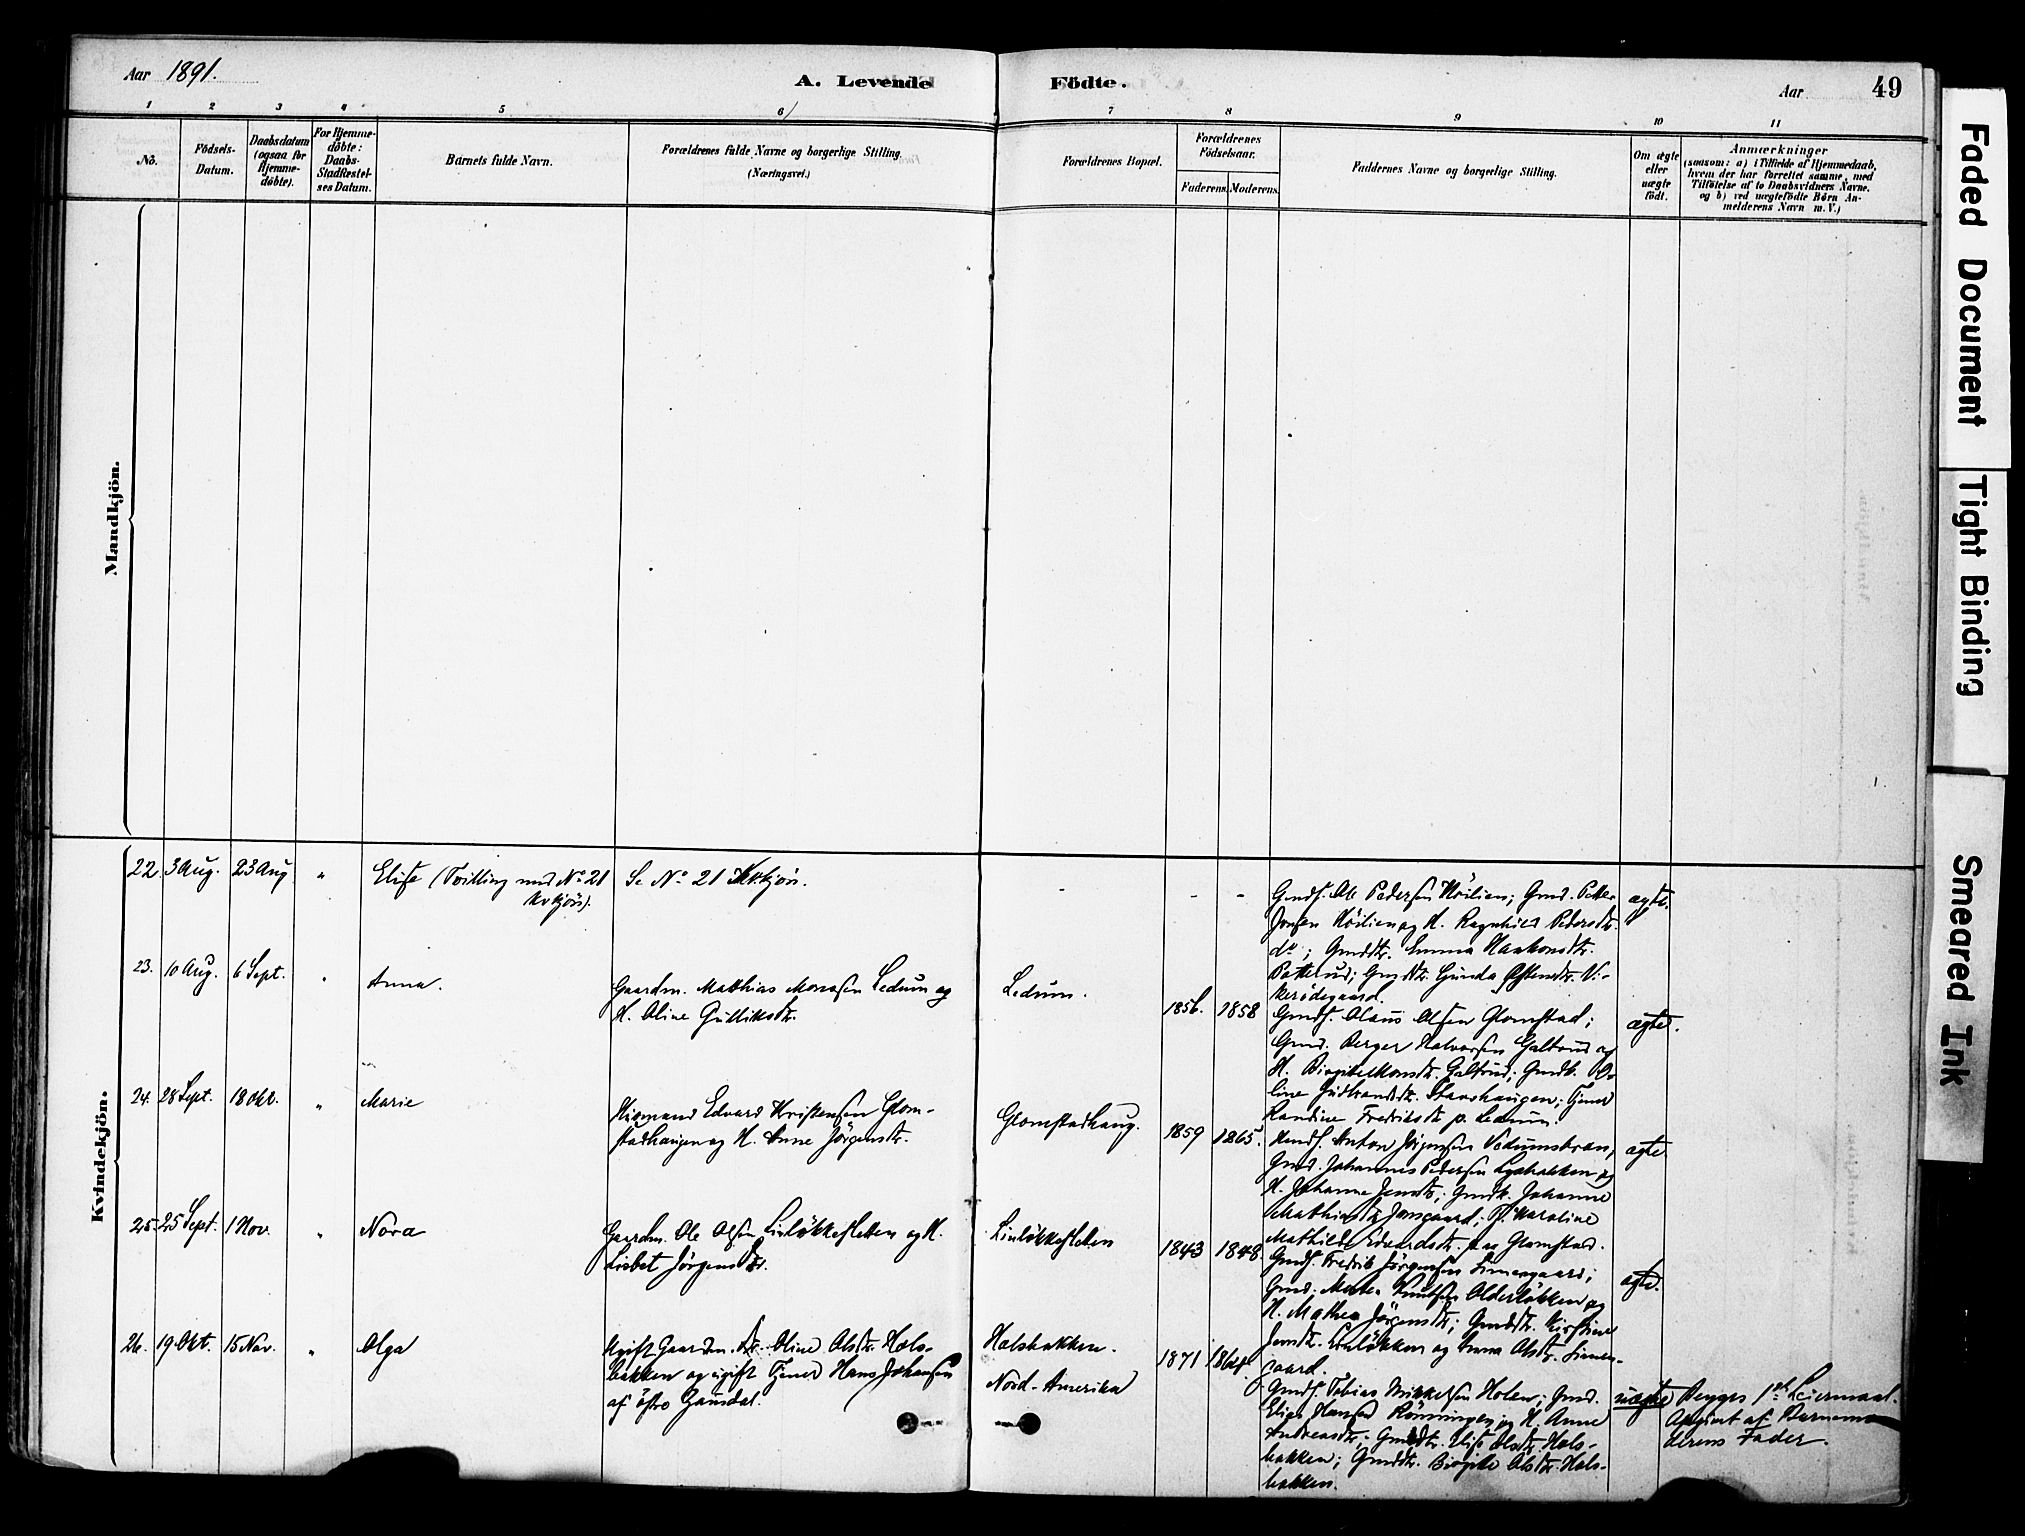 Aar 1891.
A. Levende Födte.
Aar
49
1 2 3 4 5 6 7 8 9 10 11
No.
Födsels-
Datum.
Daabsdatum
(ogsaa for
Hjemme-
döbte).
For Hjemme-
döbte:
Daabs-
Stadfæstel-
ses Datum.
Barnets fulde Navn.
Forældrenes fulde Navne og borgerlige Stilling.
(Næringsvei.)
Forældrenes Bopæl.
Forældrenes
Födselsaar.
Faderens. Moderens.
Faddernes Navne og borgerlige Stilling.
Om ægte
eller
uægte
födt.
Anmærkninger
(saasom: a) i Tilfælde af Hjemmedaab,
hvem der har forrettet samme, med
Tilföielse af to Daabsvidners Navne.
og b) ved uægtefödte Börn An-
melderens Navn m. V.)
Mandkjön.
Kvindekjön.
22. 3 Aug. 23 Aug " Elise (Tvilling med No. 21
Kvkjön).
Se No. 21 Kvkjön.
- - -
Gmdf. Ole Pedersen Höilien; Gmd. Petter
Jonsen Höilien og H. Ragnhild Pedersdtr.
do; Gmddtr. Emma Haakonsdtr.
Gmddtr. Gunda Ostensdtr. Vi-
kerödegaard.
ægte.
23. 10 Aug. 6 Sept. " Anna.
Gaardm. Mathias Monssen Ledum og
H. Oline Gulliksdtr.
Ledum.
1856. 1858
Gmdf. Olaus Olsen Glomstad;
Gmd. Berger Halvorsen Galtrud og
H. Birgithe Galtrud;
line Gudbrandsdtr. Staashaugen; Tjener
Randine Fredriksdtr p. Ledum.
ægte.
24. 28 Sept. 18 Okt. " Marie
Husmand Edvard Kristensen Glom-
stadhaugen og H. Anne Jörgensdtr.
Glomstadhaug.
1859 1865.
Anton Jörgensen
Gmd. Johannes Pedersen og
H. Johanne Jensdtr; Johanne
Mathiasdtr Karoline
Mathilde Edvardsdtr. paa Glomstad.
ægte
25. 25 Sept. 1 Nov. " Nora
Gaardm. Ole Olsen Linlökkesletten og H.
Lisbet Jörgensdtr.
Linlökkesletten
1843 1848.
Gmdf. Fredrik Jörgensen Linnesgaard;
Gmd. Knutsen Olderlökken og
H. Mathea Jörgensdtr; Gmddtr. Kirstine
Jensdtr. og Anna Olsdtr. Linnes-
gaard.
ægte.
26. 19 Okt. 15 Nov. " Olga
Ugift Gaardm. dtr. Oline Olsdtr. Hals-
bakken og ugift Tjener Hans Johansen
af östre Gausdal.
Halsbakken.
Nord-Amerika
1871 1864.
Gmdf. Tobias Mikkelsen Holen; Gmd.
Elias Hansen Rönningen og H. Anne
Andreasdtr. Gmddtr. Elise Olsdtr. Hals-
bakken; Gmddtr. Birgithe Olsdtr. Hals-
bakken.
uægte
Begges 1ste Leiermaal.
Opgivet af Barnemo-
derens Fader.
Faded Document
Tight Binding
Smeared Ink